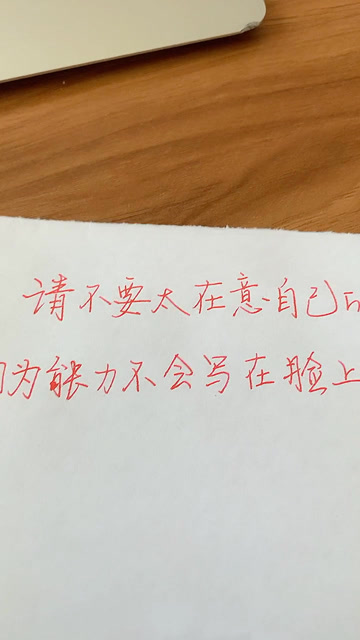 请不要太在意自己
为能力不会写在脸上